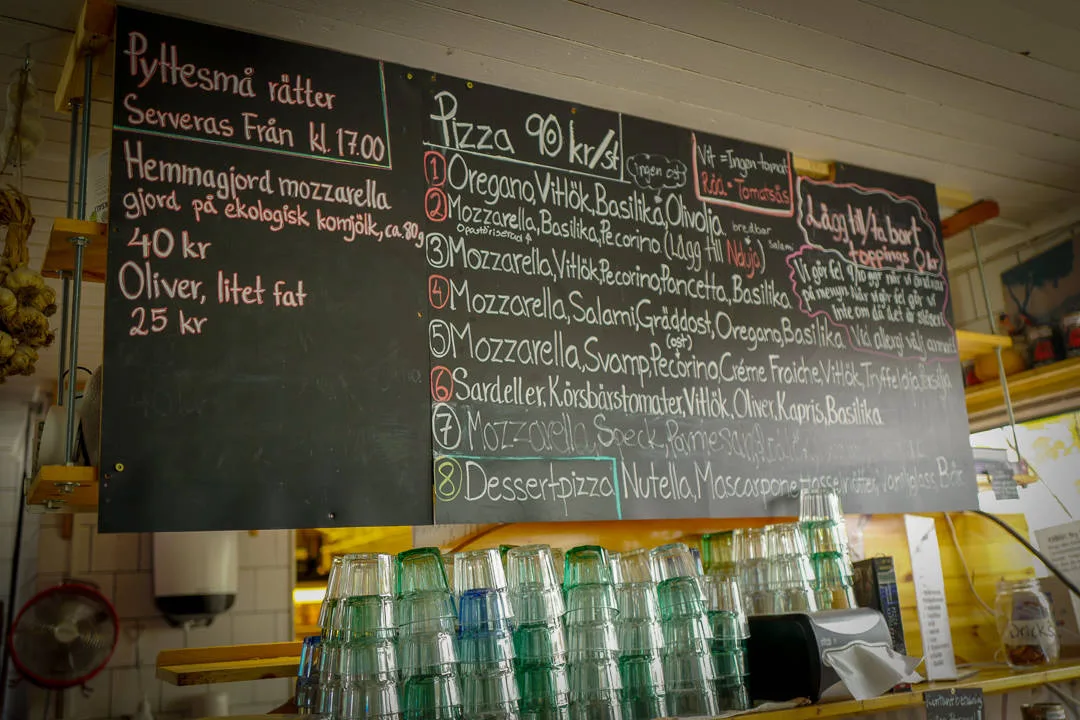 Pyttesmå rätter
Serveras Från kl. 17.00
Hemmagjord mozzarella
gjord på ekologisk komjölk, ca. 80g
40 kr
Oliver, litet fat
25 kr
Pizza 90 kr/st
Ingen ost
Vit = Ingen tomat
Röd = Tomatsås
① Oregano, Vitlök, Basilika, Olivolja
② Mozzarella, Basilika, Pecorino (Lägg till Nduja)
Opastöriserad
bredbar
Salami
③ Mozzarella, Vitlök, Pecorino, Pancetta, Basilika
④ Mozzarella, Salami, Gräddost, Oregano, Basilika
⑤ Mozzarella, Svamp, Pecorino, Créme Fraiche, Vitlök, Tryffelolja, Persilja
(ost)
⑥ Sardeller, Körsbärstomater, Vitlök, Oliver, Kapris, Basilika
⑦ Mozzarella, Speck, Parmesan
⑧ Dessertpizza Nutella, Mascarpone, Hasselnötter, Vaniljglass, Bär
Lägg till/ta bort
toppings 0 kr
Vi gör fel
på menyn. När vi gör fel gör vi
inte om då det är slöseri.
Vid allergi välj annat!
DRICKS